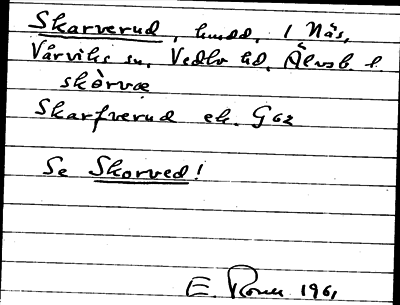 Skarverud, hmdd. i Näs,
Vårviks sn. Vedbo hd. Älvsb. l
skårvæ
Skarfverud ek. G62
Se Skorved!
E. 1961